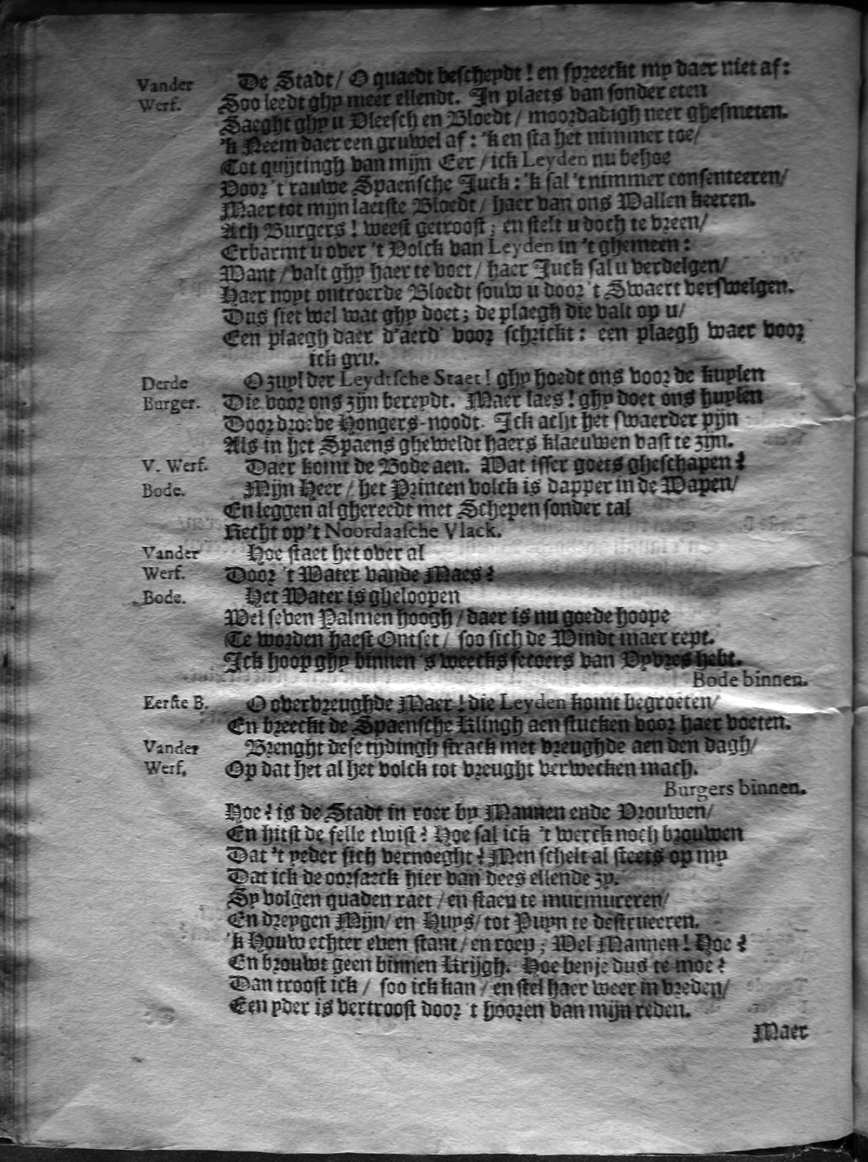 Vander De Stadt/ O quaedt bescheydt! en spreeckt my daer niet af:
Werf. Soo leedt ghy meer ellendt. In plaets van sonder eten
Saeght ghy u Vleesch en Bloedt/ moordadigh neer ghesmeten.
'k Neem daer een gruwel af: 'k en sta het nimmer toe/
Tot quijtingh van mijn Eer/ ick Leyden nu behoe
Voor 't rauwe Spaensche Juck: 'k sal 't nimmer consenteeren/
Maer tot mijn laetste Bloedt/ haer van ons Wallen keeren.
Ach Burgers! weest getroost; en stelt u doch te vreen/
Erbarmt u over 't Volck van Leyden in 't ghemeen:
Want/ valt ghy haer te voet/ haer Juck sal u verdelgen/
Haer noyt ontroerde Bloedt souw u door 't Swaert verswelgen.
Dus siet wel wat ghy doet; de plaegh die valt op u/
Een plaegh daer d'aerd' voor schrickt: een plaegh waer voor
ick gru.
Derde O zuyl der Leydtsche Staet! ghy hoedt ons voor de kuylen
Burger. Die voor ons zijn bereydt. Maer laes! ghy doet ons huylen
Door droeve Hongers-noodt. Ick acht het swaerder pijn
Als in het Spaens gheweldt haers klaeuwen vast te zijn.
V. Werf. Daer komt de Bode aen. Wat isser goets gheschapen?
Bode. Mijn Heer/ het Princen volck is dapper in de Wapen/
En leggen al ghereedt met Schepen sonder tal
Recht op 't Noordaasche Vlack.
Vander Hoe staet het over al
Werf. Door 't Water vande Maes?
Bode. Het Water is gheloopen
Wel seven Palmen hoogh/ daer is nu goede hoope
Te worden haest Ontset/ soo sich de Windt maer rept.
Ick hoop ghy binnen 's weecks secoers van Vyvres hebt.
Bode binnen.
Eerste B. O overvreughde Maer! die Leyden komt begroeten/
En breeckt de Spaensche Klingh aen stucken voor haer voeten.
Vander Brenght dese tydingh strack met vreughde aen den dagh/
Werf. Op dat het al het volck tot vreught verwecken mach.
Burgers binnen.
Hoe? is de Stadt in roer by Mannen ende Vrouwen/
En hitst de felle twist? Hoe sal ick 't werck noch brouwen
Dat 't yeder sich vernoeght? Men schelt al steets op my
Dat ick de oorsaeck hier van dees ellende zy.
Sy volgen quaden raet/ en staen te murmureren/
En dreygen Mijn/ en Huys/ tot Puyn te destrueeren.
'k Houw echter even stant/ en roep; Wel Mannen! Hoe?
En brouwt geen binnen Krijgh. Hoe benje dus te moe?
Dan troost ick/ soo ick kan/ en stel haer weer in vreden/
Een yder is vertroost door 't hooren van mijn reden.
Maer